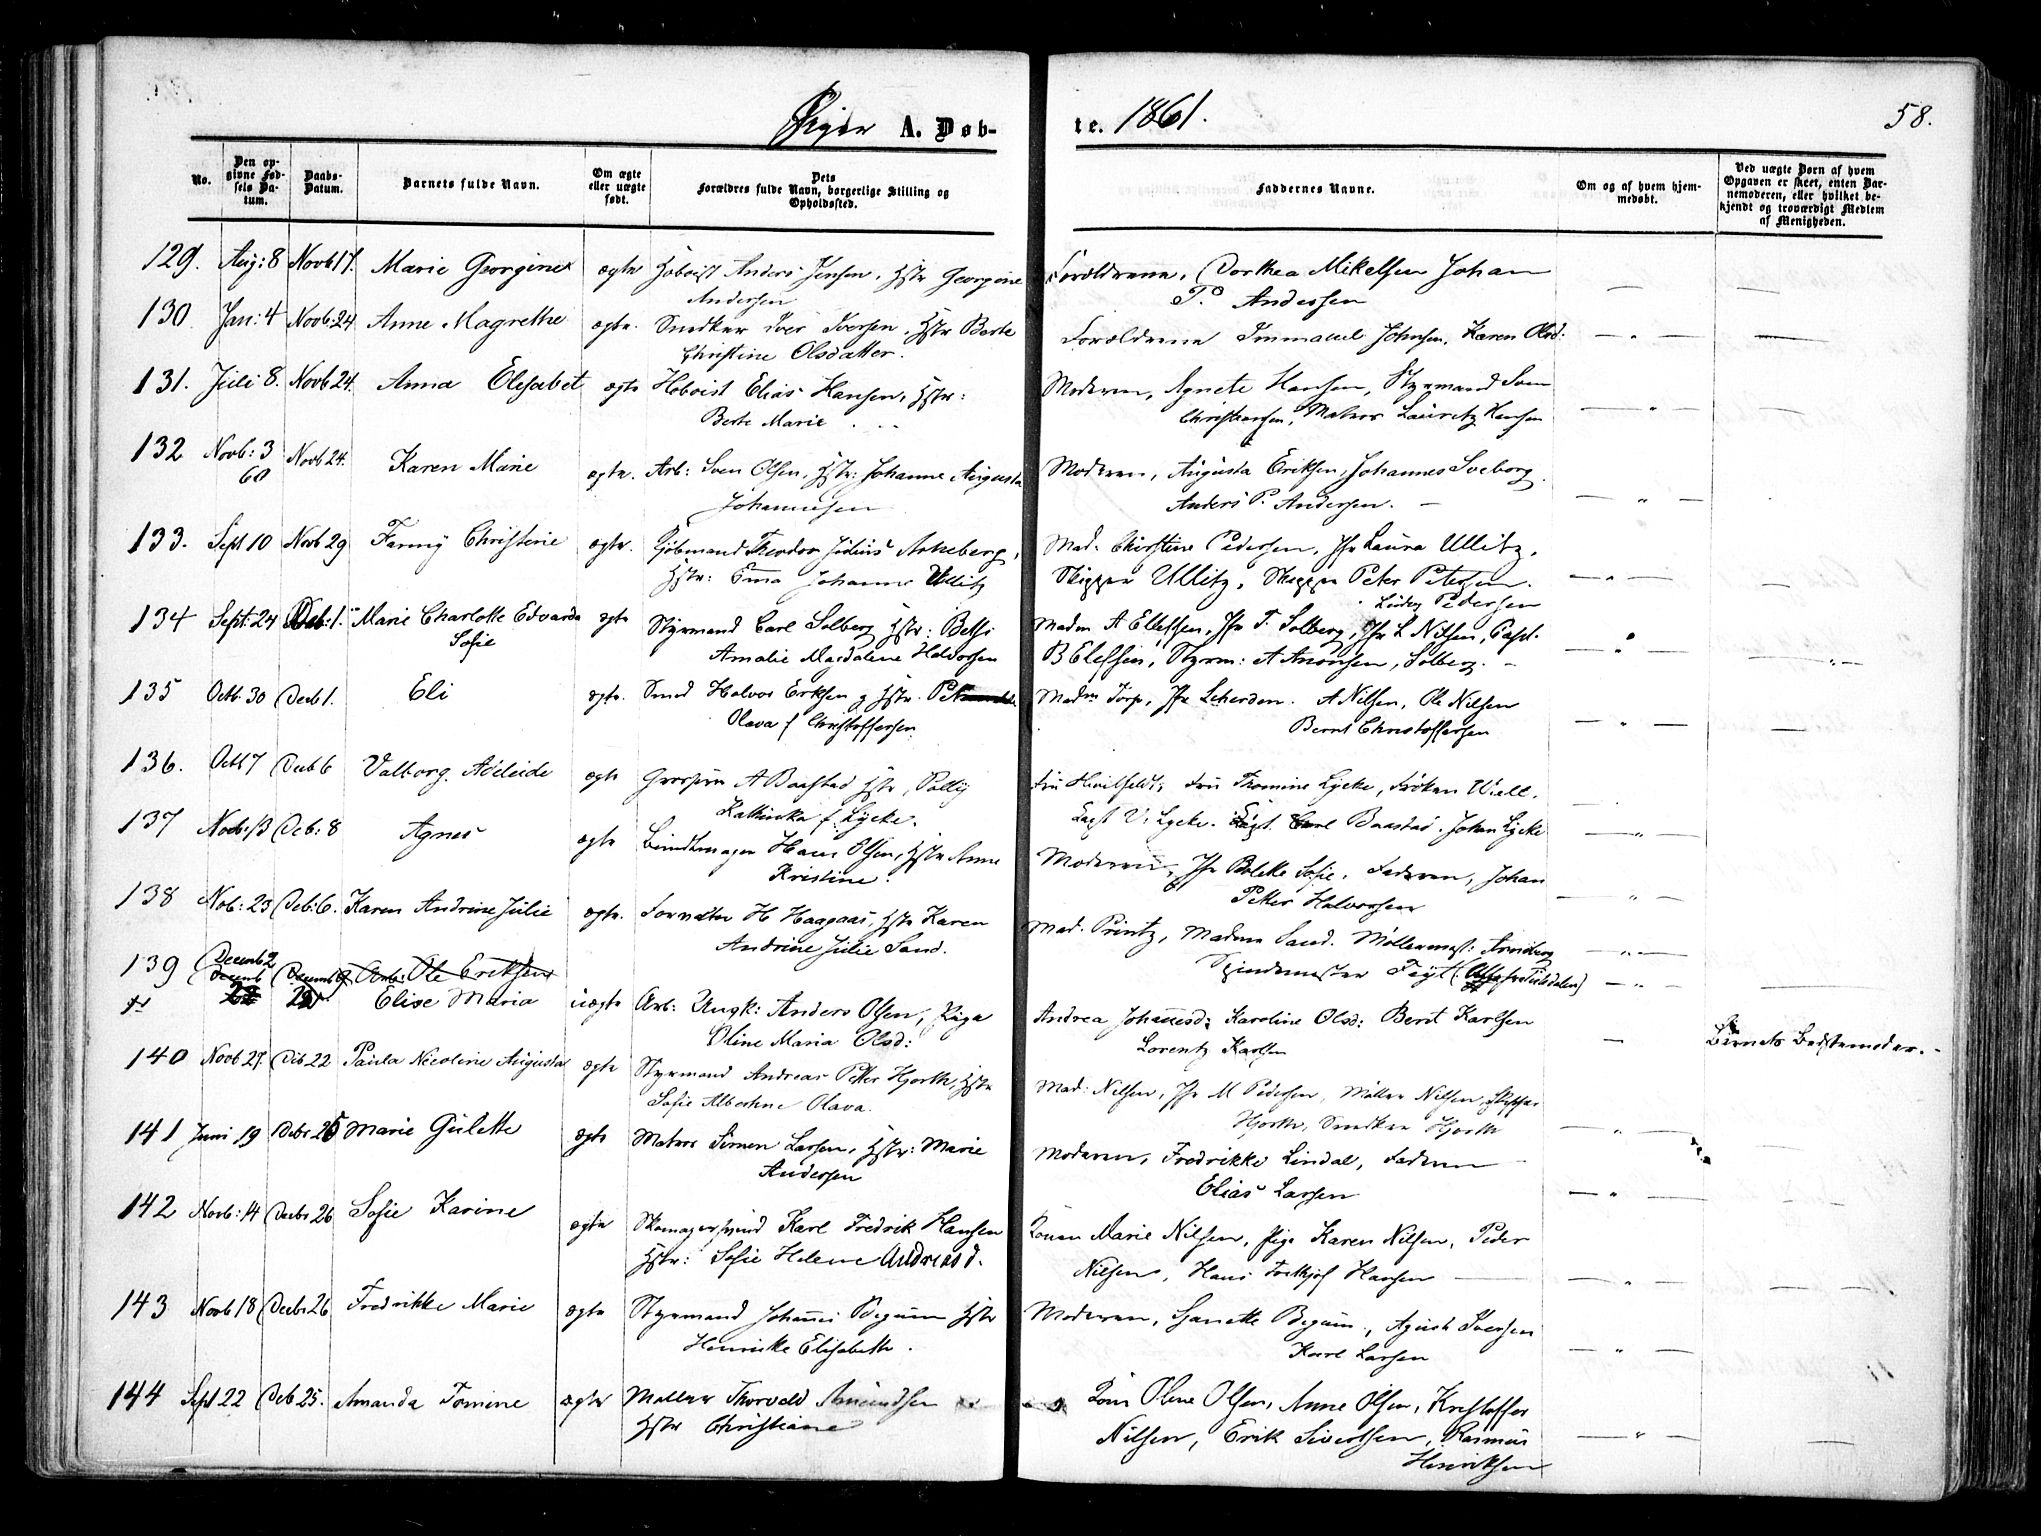 Piger A. Døb-
te. 1861.
58.
No.
Den op-
givne Fød-
sels Da-
tum.
Daabs-
Datum.
Barnets fulde Navn.
Om ægte
eller uægte
født.
Dets
Forældres fulde Navn, borgerlige Stilling og
Opholdssted.
Faddernes Navne.
Om og af hvem hjem-
medøbt.
Ved uægte Børn af hvem
Opgaven er skeet, enten Bar-
nemoderen, eller hvilket be-
kjendt og troværdigt Medlem
af Menigheden.
129. Aug: 8 Novb 17. Marie Georgine ægte Hoboist Anders Jensen, Hstr Georgine
Andersen
Forældrene, Dorthea Mikelsen Johan
P. Andersen
130 Jan: 4 Novb: 24 Anne Magrethe ægte. Snedker Iver Iversen, Hstr Berte
Christine Olsdatter.
Forældrene Immanuel Johnsen, Karen Olsd:
131. Juli 8. Novb 24. Anna Elisabet ægte Hoboist Elias Hansen, Hstr:
Berte Marie
Moderen, Agnete Hansen, Styrmand Sven
Christensen, Matros Lauritz Hansen
132 Novb: 3 Novb 24. Karen Marie ægte. Arb: Sven Olsen, Hstr: Johanne Augusta
60
Johannesen
Moderen, Augusta Eriksen, Johannes Sveborg
Anders P. Andersen.
133. Sept 10 Novb 29 Fanny Christine ægte. Kjøbmand Theodor Julius Asheberg,
Hstr: Ema Johanne Ullitz
Mad. Christine Pedersen, Jfr Laura Ullitz,
Skipper Ullitz, Skipper Peter Petersen.
Pedersen
134 Sept: 24 Deb: 1. Marie Charlotte Edvarda ægte Styrmand Carl Solberg Hstr: Betsi
Sofie
Amalie Magdalene Halvorsen
Madm A Ellefsen, Jfr T. Solberg, Jfr L Nilsen, Capt.
B Elefsen, Styrm: A Anonsen, Solberg.
135 Octb. 30 Decb 1. Eli ægte. Smed Halvor Eriksen g Hstr.
Olava f Christoffersen
Madm Torp, Jfr A Nilsen, Ole Nilsen
Bernt Christoffersen
136. Octb 7 Decb 6 Valborg Adeleide ægte A Baastad Hstr, Polly
Kathinka f. Lycke.
Fru Thomine Lycke, Frøken Wiell.
Capt V. Lycke. Capt. Carl Baastad. Johan Lycke
137 Novb: 13 Deb: 8 Agnes ægte Bundtmager Hans Olsen, Hstr Anne
Kristine.
Moderen, Jfr Bolette Sofie, Faderen, Johan
Petter Halvorsen
138 Nob: 23 Deb: 6. Karen Andrine Julie ægte. Forvalter H Haggaas, Hstr Karen
Andrine Julie Sand.
Mad. Printz, Madm Sand. Møllermest: Arneberg
Spindemester Føyt
139 Decemb 2 Ole Eriksen
Elise Maria uægte Arb: Ungk: Anders Olsen, Piga
Oline Maria Olsd:
Andrea Johanesd: Karoline Olsd: Berit Karlsen
Lorentz Karlsen
Barnets Bedstemoder.
140 Novb 27. Deb 22 Paula Nicoline Augusta ægte Styrmand Andreas Petter Hjorth, Hstr
Sofie Albertine Olava.
Mad: Nilsen, Jfr M Pedersen, Møller Nilsen, Skipper
Hjorth, Snedker Hjorth
141 Juni 19 Debr 26 Marie Gulette ægte Matros Simen Larsen, Hstr: Marie
Andersen
Moderen, Fredrikke Lindal, Faderen
Elias Larsen
142 Novb: 14 Decbr 26 Sofie Karine ægte Skomagersvend Karl Fredrik Hansen
Hstr: Sofie Helene Andreasd.
Konen Marie Nilsen, Pige Karen Nilsen, Peder
Nilsen, Hans Hansen
143 Novb 18 Decbr 26 Fredrikke Marie ægte Styrmand Johannes Begum Hstr
Henrikke Elisabeth.
Moderen, Begum, August Iversen
Karl Larsen
144 Sept 22 Deb 25. Amanda Tomine ægte Møller Thorvald Amundsen
Hstr Christiane
Kone Oline Olsen, Anne Olsen, Kristoffer
Nilsen, Erik Sivertsen, Rasmus
Henriksen